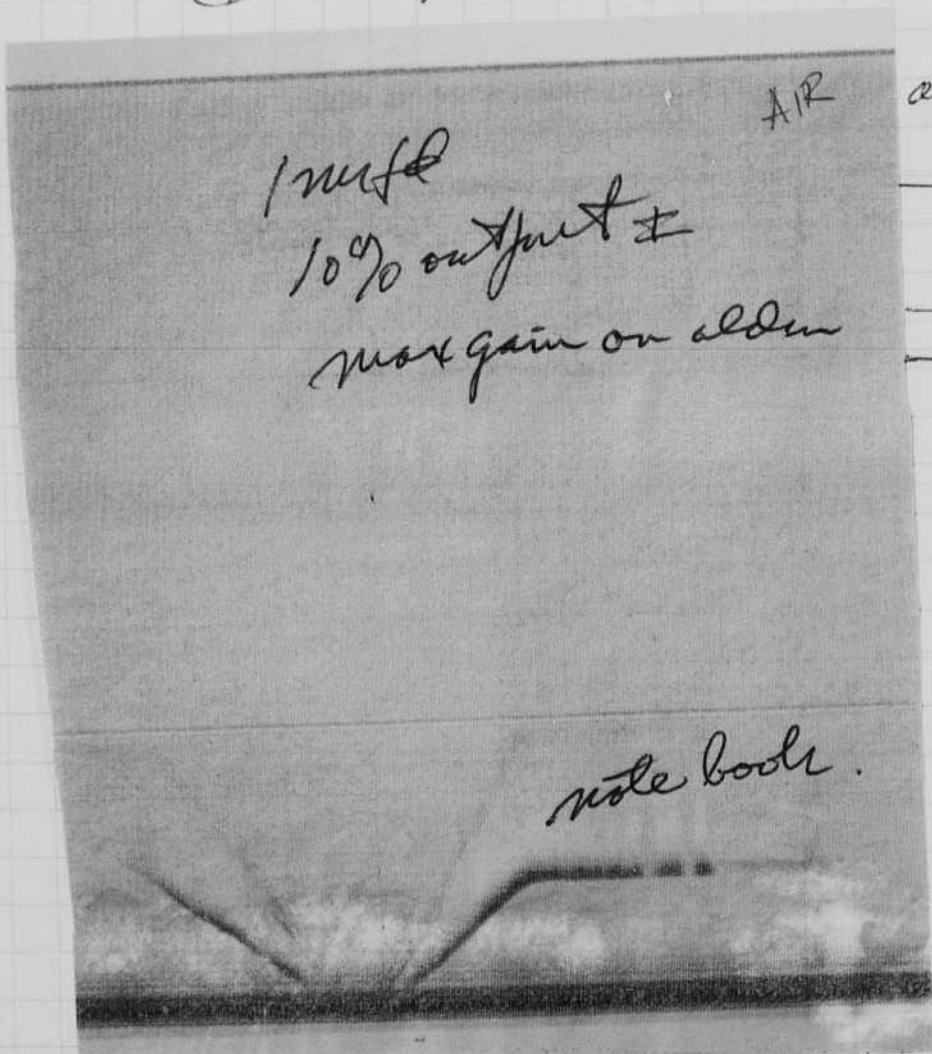 AIR
1 mfd
10% output I
max gain on alden
note book.